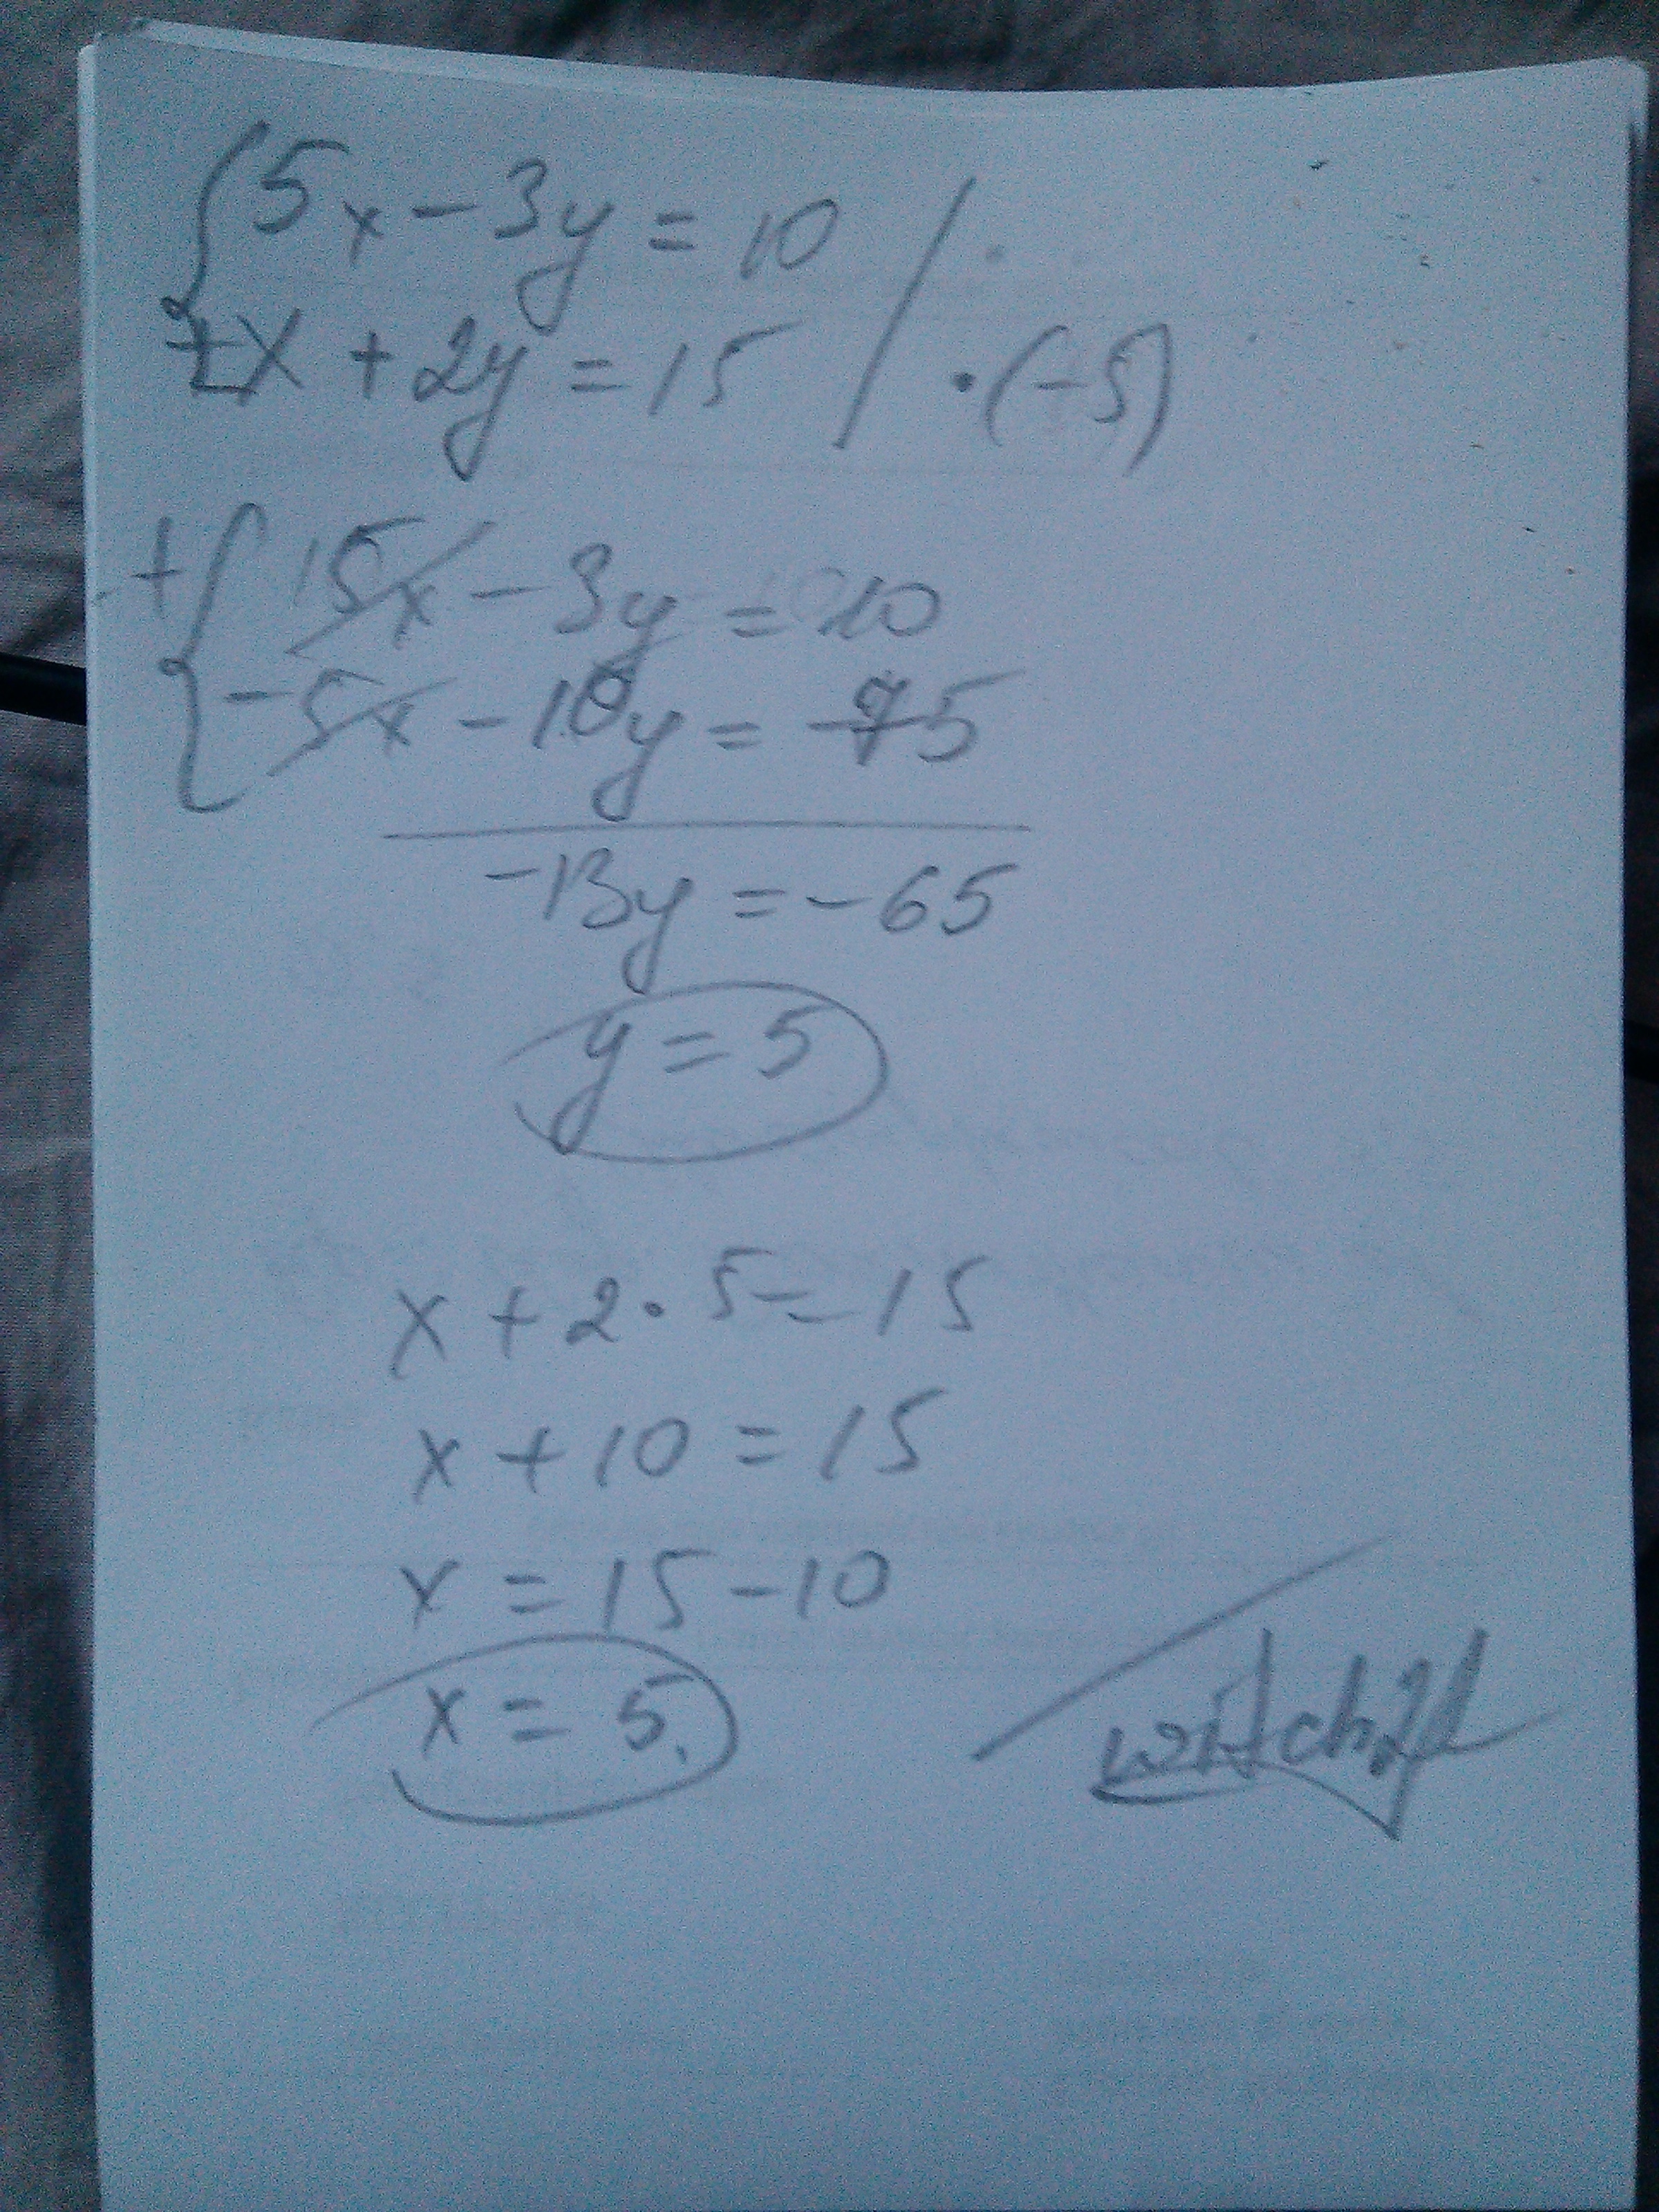 {5x - 3y = 10 / ·
x + 2y = 15 / · (-5)
+ { 5x - 3y = 10
-5x - 10y = -75
-13y = -65
y = 5
x + 2 · 5 = 15
x + 10 = 15
x = 15 - 10
x = 5.